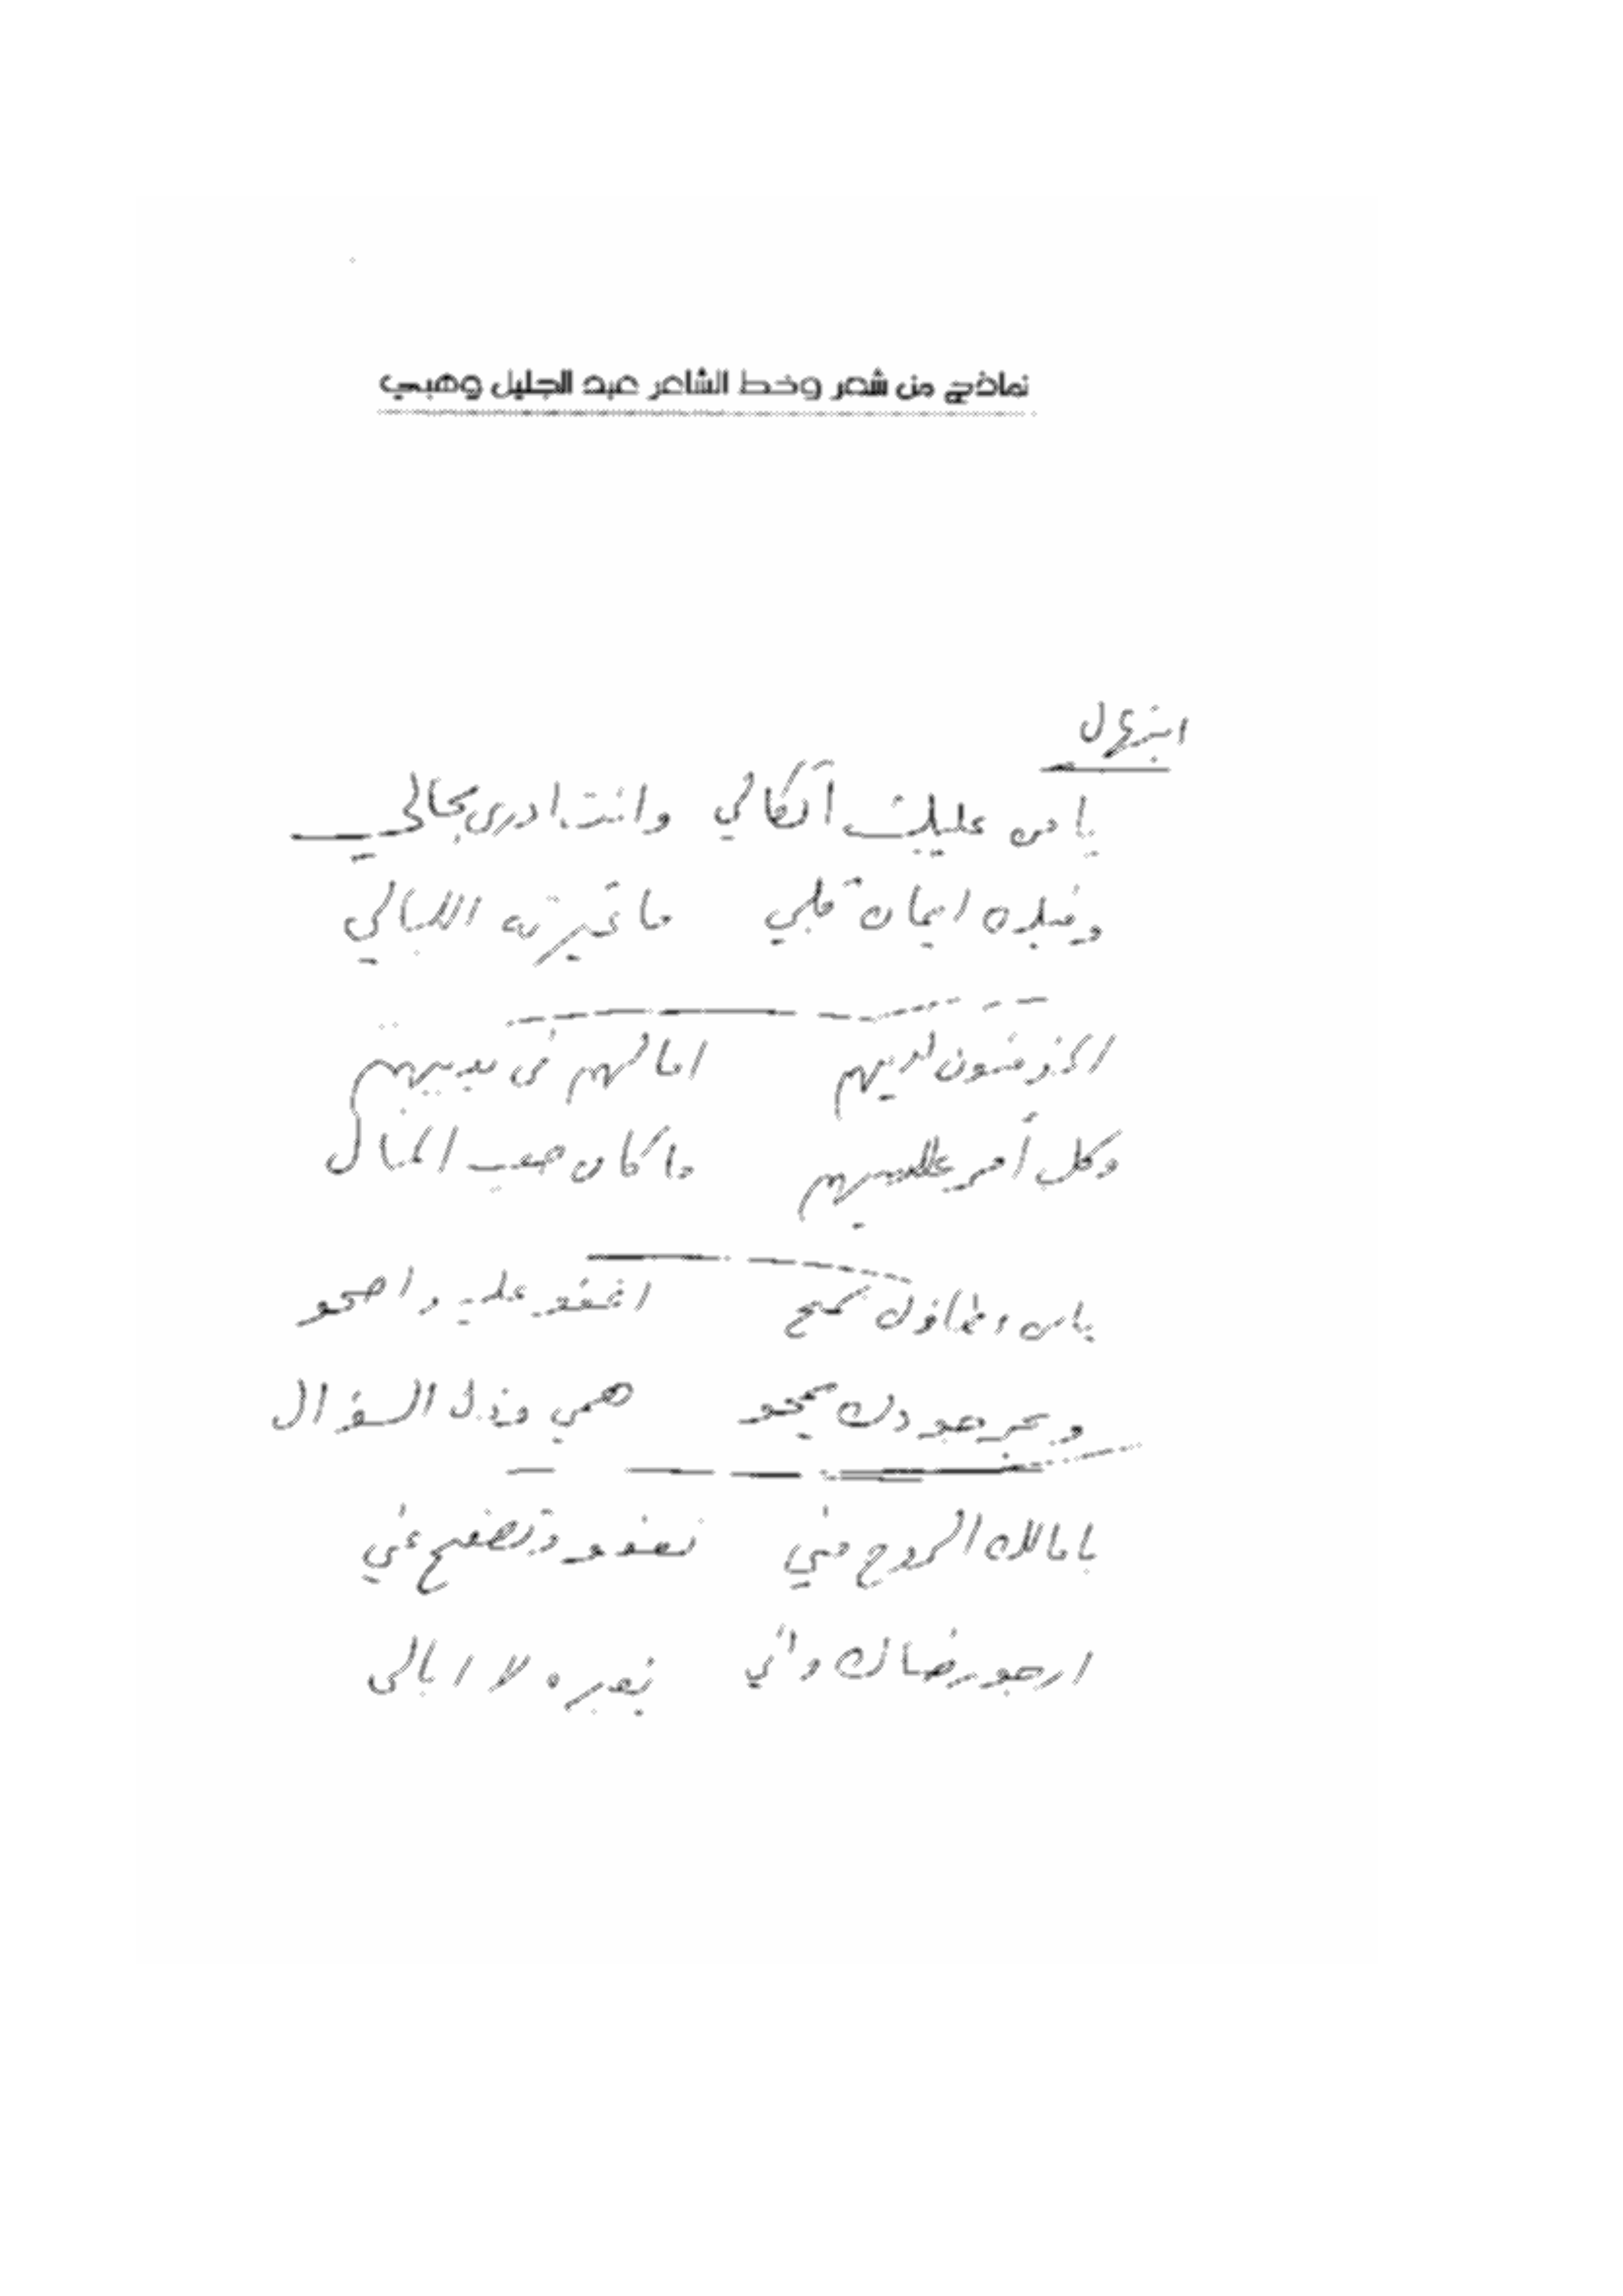 نماذج من شعر وخط الشاعر عبد الجليل وهبي
ابتهال
يا من عليك اتكالي وانت ادرى بحالي
وفيك ايمان قلبي ما غيرته الليالي
اكرمتهم امالهم في يديهم
وكل أمر عليهم ما كان صعب المنال
يا من سمح اغفو عليه واصحو
وبحر جودك يمحو همي وذل السؤال
يا مالك الروح مني تعفو وتصفح عني
ارجو رضاك واني بغيره لا ابالي